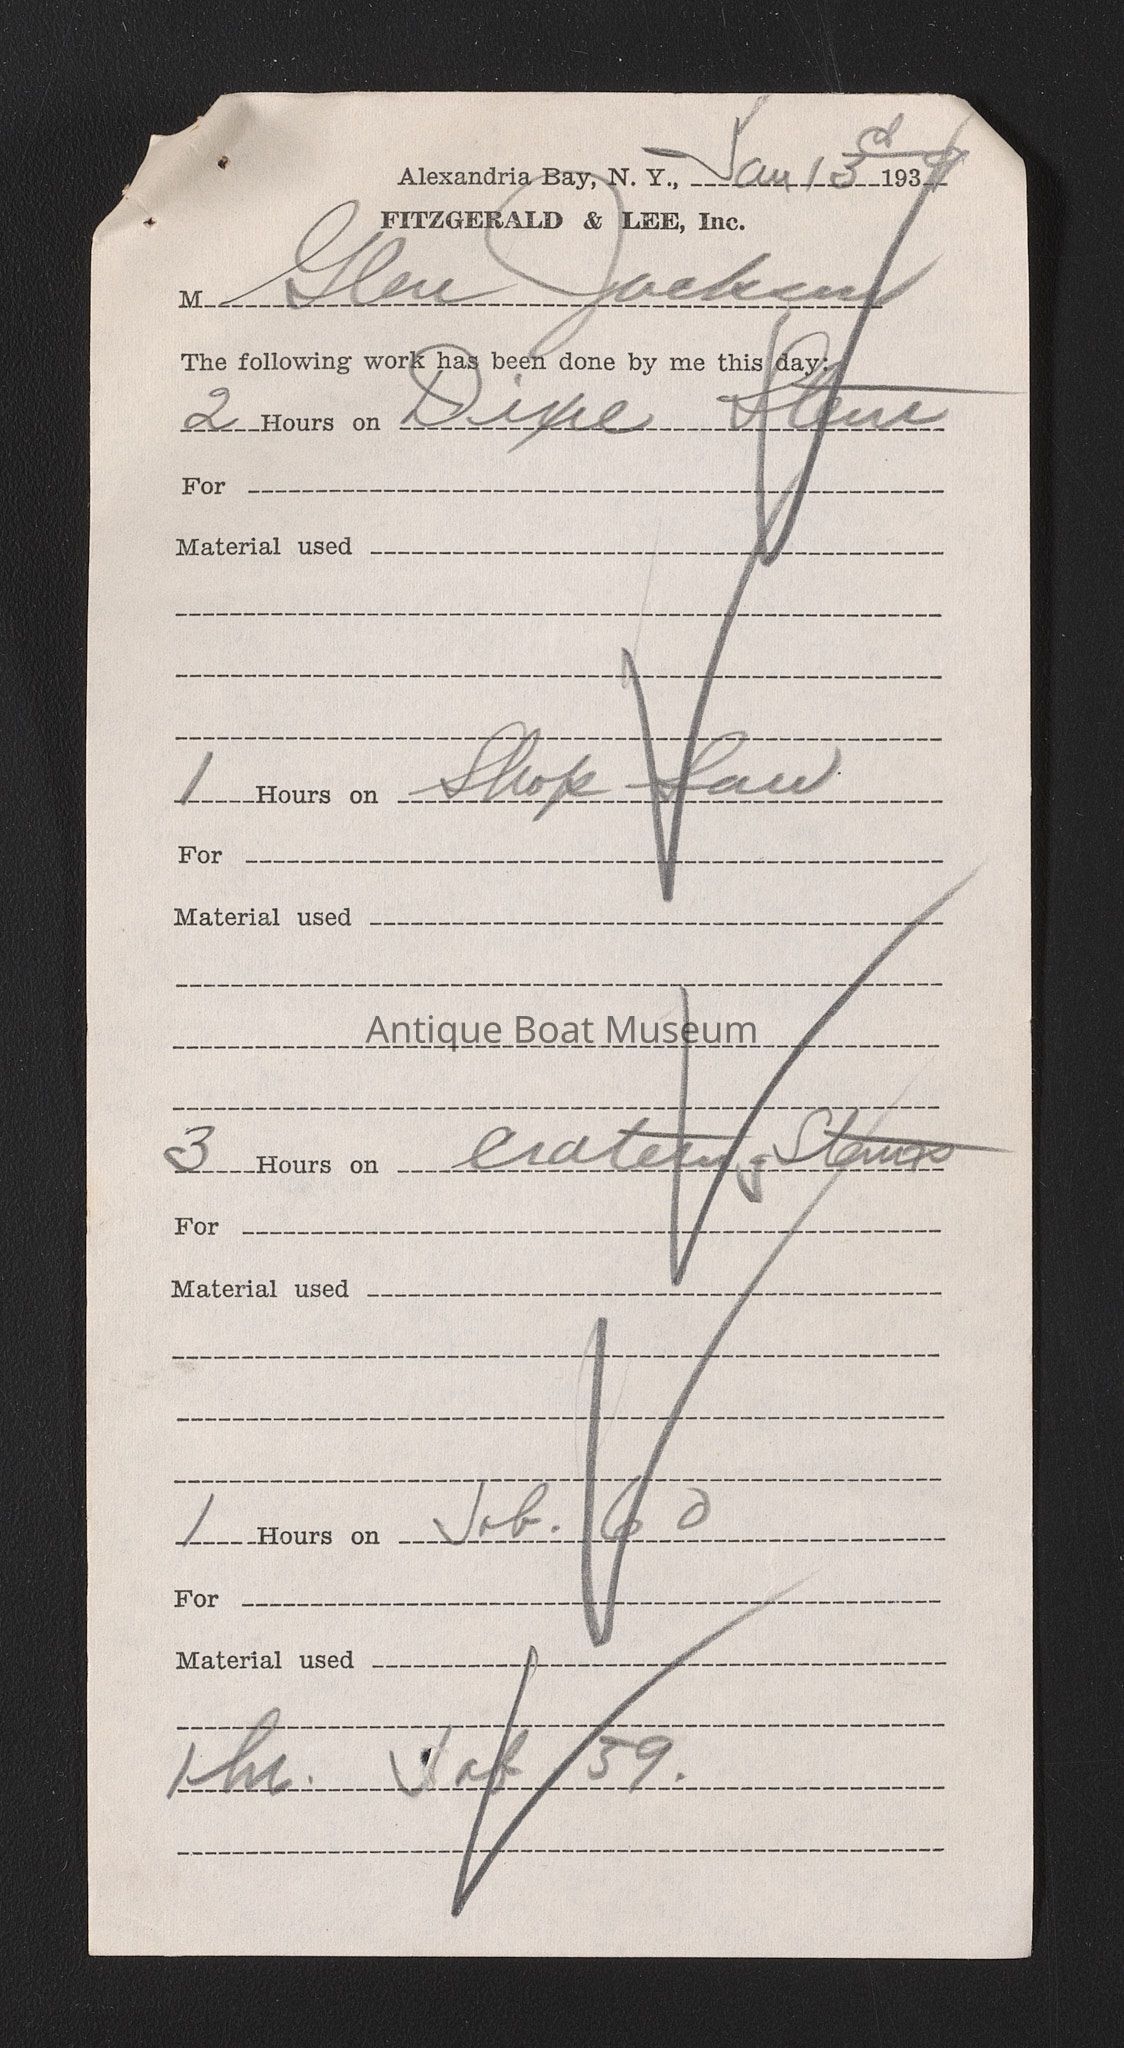 Alexandria Bay, N. Y., Jan 13 193
FITZGERALD & LEE, Inc.
M Glen Jackson
The following work has been done by me this day:
2 Hours on Dixie
For
Material used
1 Hours on Shop Saw
For
Material used
Antique Boat Museum
3 Hours on Crateing Stems
For
Material used
1 Hours on Job. 60
For
Material used
1 hr. Job 59.